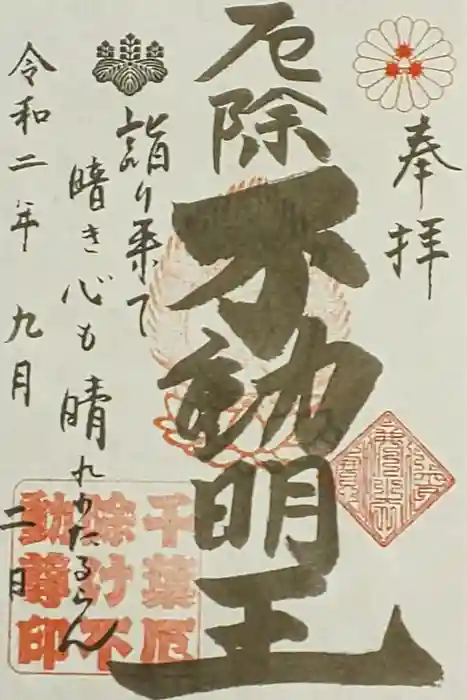 奉拝
厄除
不動明王
詣り来て
暗き心も
晴れわたるらん
令和二年九月二日
千葉厄
除け不
動尊印